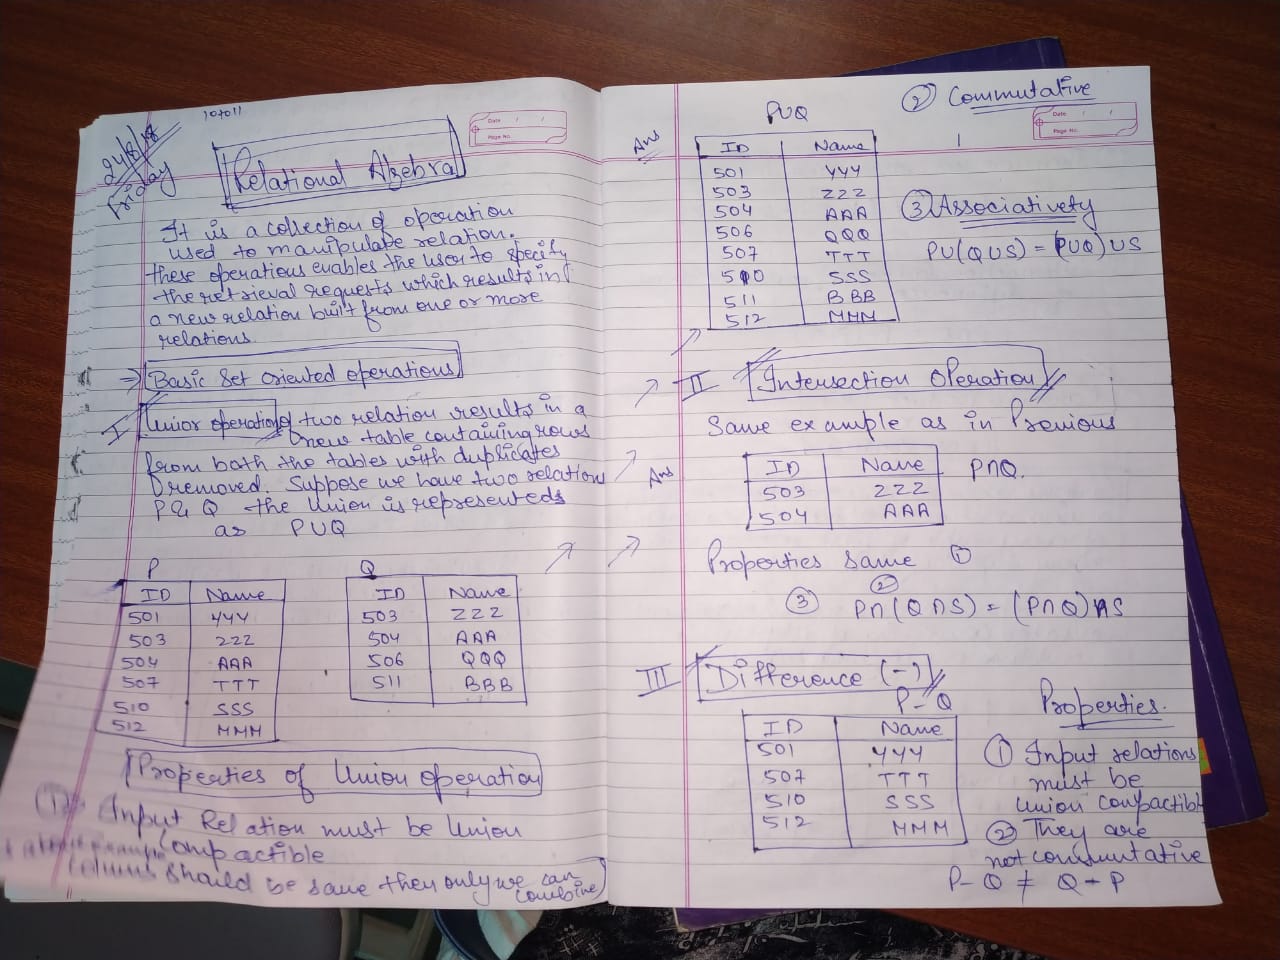 24/8/18
Friday
Date / /
Page No.
Relational Algebra
It is a collection of operation
used to manipulate relation.
these operations enables the user to specify
the retrieval requests which results in
a new relation built from one or more
relations.
⇒ Basic Set oriented operations
I Union operation of two relation results in a
new table containing rows
from both the tables with duplicates
removed. Suppose we have two relations
P & Q the Union is represented
as P∪Q
P
ID Name
501 YYY
503 ZZZ
504 AAA
507 TTT
510 SSS
512 MMM
Q
ID Name
503 ZZZ
504 AAA
506 QQQ
511 BBB
Properties of Union operation
(1) Input Relation must be Union
Compactible
columns should be same then only we can
combine
Date / /
Page No.
Ans
P∪Q
ID Name
501 YYY
503 ZZZ
504 AAA
506 QQQ
507 TTT
510 SSS
511 BBB
512 MMM
② Commutative
③ Associativety
P∪(Q∪S) = (P∪Q)∪S
II Intersection Operation
Same example as in Previous
Ans
ID Name
503 ZZZ
504 AAA
P∩Q.
Properties same ①
②
③ P∩(Q∩S) = (P∩Q)∩S
III Difference (-)
P-Q
ID Name
501 YYY
507 TTT
510 SSS
512 MMM
Properties.
① Input relations
must be
Union compactible
② They are
not commutative
P-Q ≠ Q-P